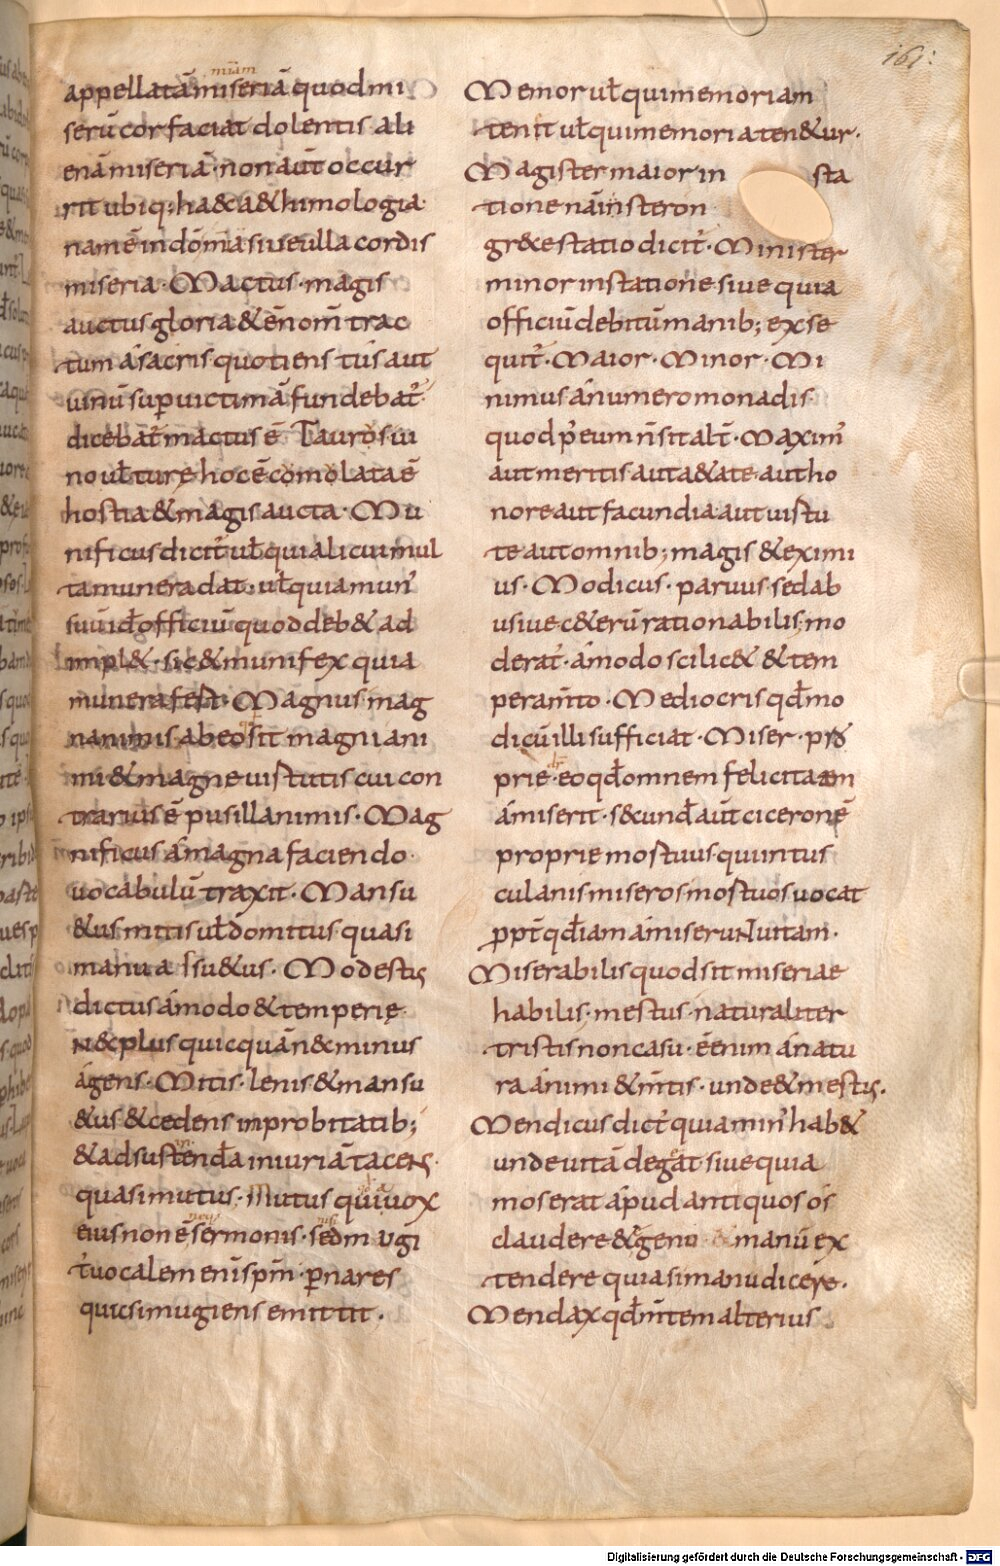 161:
miam
appellatā miseriā quod mi
serū cor faciat dolentis ali
enā miseriā· non aūt occur
rit ubiq; h& &himologia·
nam ē in dōm̄ a siue ulla cordis
miseria· Mactus· magis
auctus gloria & ē nom̄ trac
tum á sacris quotiens tús aut
uinū sup uictimā fundebat̄·
dicebat̄ mactus ē Taurus ui
no uł ture hoc ē comolata ē
hostia & magis aucta· Mu
nificus dicit̄ uł quia licui mul
ta munera dat· uł quia mun̄
suū id officiū quod deb& ad
impl&· sic & munifex quia
munera fest· Magnus mag
nanimis ab eo sit magni ani
mi & magne uirtutis cui con
trarius ē pusillanimis· Mag
nificus á magna faciendo
uocabulū traxit· Mansu
&us mitis uł domitus quasi
manu a ssu&us· Modestus
dictus á modo & temperię·
N& plus quicquā n& minus
ágens· Mitis· lenis & mansu
&us & cedens improbitatib;
& ad sustenda iniuriā tacens·
quasi mutus· Mutus qui uox
eius non ē sermonis· sed mugi
t̄ uocalem enī spm̄ p nares
quasi mugiens emittit·
Memor uł qui memoriam
tenit uł qui memoria ten&ur·
Magister maior in sta
tione nā in steron
gr&e statio dicit̄· Minister
minor in statione siue quia
officiū debitū manib; exse
quit̄· Maior· Minor· Mi
nimus á numero monadis·
quod p eum n̄ sit alt̄· Maxim̄
aut meritis aut a&ate aut ho
nore aut facundia aut uirtu
te aut omnib; magis & eximi
us· Modicus· paruus sed ab
usiue c&erū rationabilis· mo
derat̄· á modo scilic& & tem
peram̄to· Mediocris qđ mo
dicū illi sufficiat· Miser· pro
prie· eo qđ omnem felicitatem
ámiserit· s&cunđ aūt ciceronē
proprie mortuus· qui in tus
culanis miseros mortuos uocat
ppt̄ qđ iam ámiserunt uitam·
Miserabilis quod sit miseriae
habilis· mestus· naturaliter
tristis non casu· ē enim á natu
ra ánimi & m̄tis· unde & mestus·
Mendicus dict̄ quia min̄ hab&
unde uitā degat siue quia
mos erat ápud antiquos ós
claudere & ęgenū & manū ex
tendere quia si manu dicere·
Mendax qđ m̄tem alterius
Digitalisierung gefördert durch die Deutsche Forschungsgemeinschaft - DFG